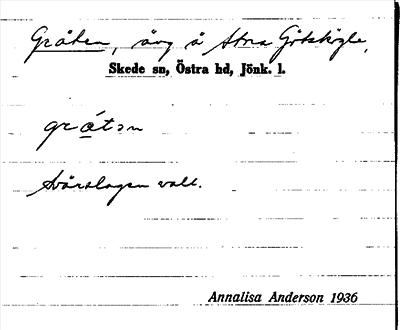 Gråten, äng å Stora Götestegle,
Skede sn, Östra hd, Jönk. l.
grátən
Svårslagen vall.
Annalisa Anderson 1936